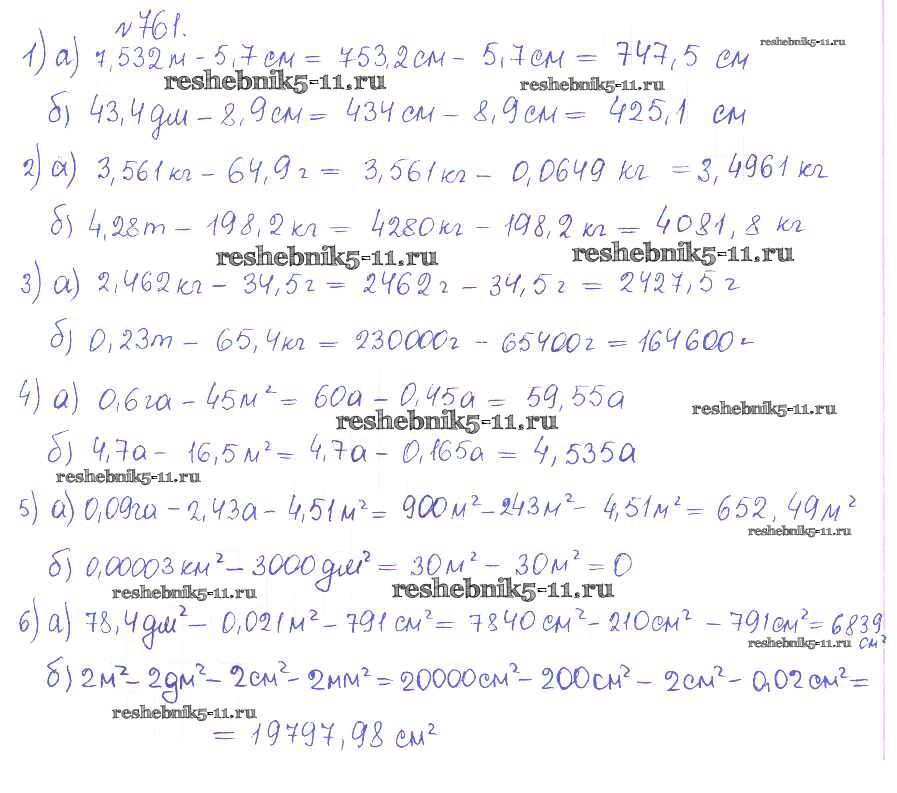 №761.
1) а) 7,532 м - 5,7 см = 753,2 см - 5,7 см = 747,5 см
reshebnik5-11.ru
reshebnik5-11.ru
reshebnik5-11.ru
б) 43,4 дм - 8,9 см = 434 см - 8,9 см = 425,1 см
2) а) 3,561 кг - 64,9 г = 3,561 кг - 0,0649 кг = 3,4961 кг
б) 4,28 т - 198,2 кг = 4280 кг - 198,2 кг = 4081,8 кг
reshebnik5-11.ru
reshebnik5-11.ru
3) а) 2,462 кг - 34,5 г = 2462 г - 34,5 г = 2427,5 г
б) 0,23 т - 65,4 кг = 230000 г - 65400 г = 164600 г
4) а) 0,6 га - 45 м² = 60 а - 0,45 а = 59,55 а
reshebnik5-11.ru
reshebnik5-11.ru
б) 4,7 а - 16,5 м² = 4,7 а - 0,165 а = 4,535 а
reshebnik5-11.ru
5) а) 0,09 га - 2,43 а - 4,51 м² = 900 м² - 243 м² - 4,51 м² = 652,49 м²
reshebnik5-11.ru
б) 0,00003 км² - 3000 дм² = 30 м² - 30 м² = 0
reshebnik5-11.ru
reshebnik5-11.ru
6) а) 78,4 дм² - 0,021 м² - 791 см² = 7840 см² - 210 см² - 791 см² = 6839
см²
reshebnik5-11.ru
б) 2 м² - 2 дм² - 2 см² - 2 мм² = 20000 см² - 200 см² - 2 см² - 0,02 см² =
reshebnik5-11.ru
= 19797,98 см²